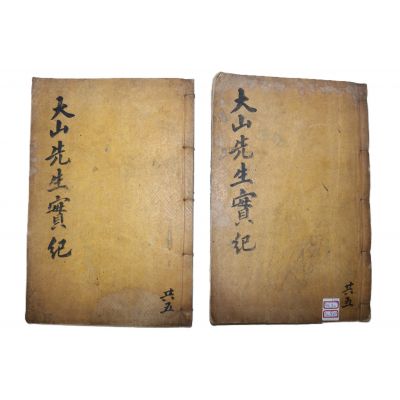 大山先生實紀
共五
大山先生實紀
共五